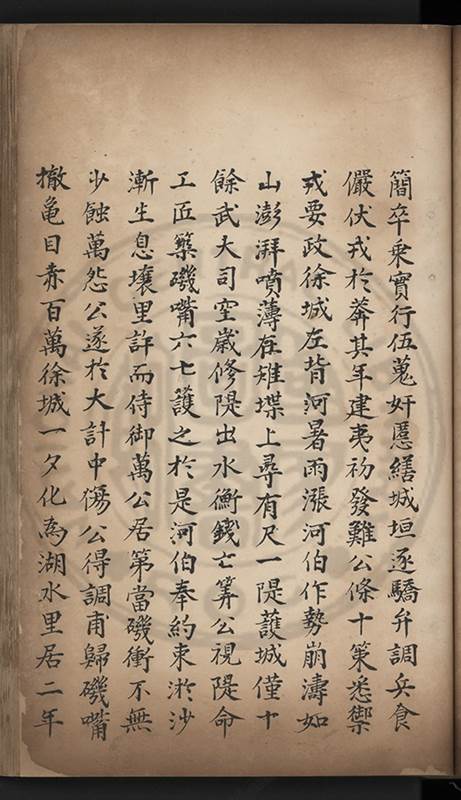 簡卒乘實行伍蒐奸慝繕城垣逐驕弁調兵食
儼伏戎於莽其年建夷初發難公條十策悉禦
戎要政徐城左背河暑雨漲河伯作勢崩濤如
山澎湃噴薄在雉堞上尋有尺一隄護城僅十
餘武大司空歲修隄出水衡錢亡筭公視隄命
工匠築磯嘴六七護之於是河伯奉約束淤沙
漸生息壤里許而侍御萬公居第當磯衝不無
少蝕萬怨公遂於大計中傷公得調甫歸磯嘴
撤龜目赤百萬徐城一夕化為湖水里居二年